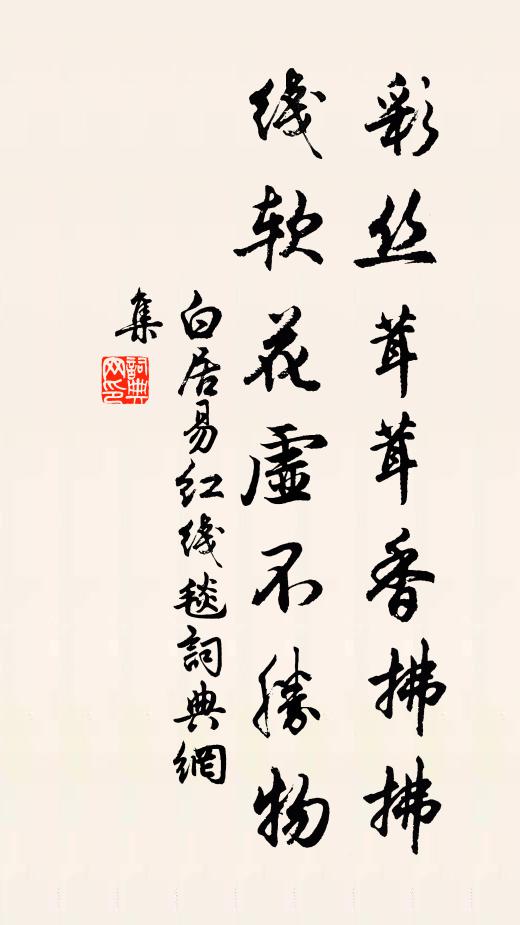 彩丝茸茸香拂拂
线软花虚不勝物
白居易红线毯詞典網
集
詞典
网印